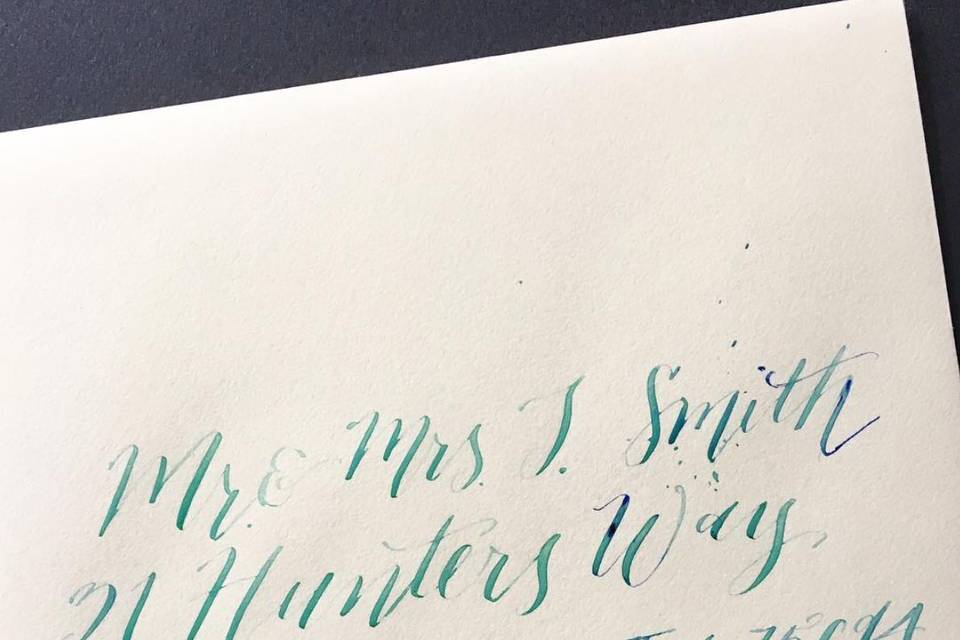 Mr. & Mrs. J. Smith
21 Hunters Way,